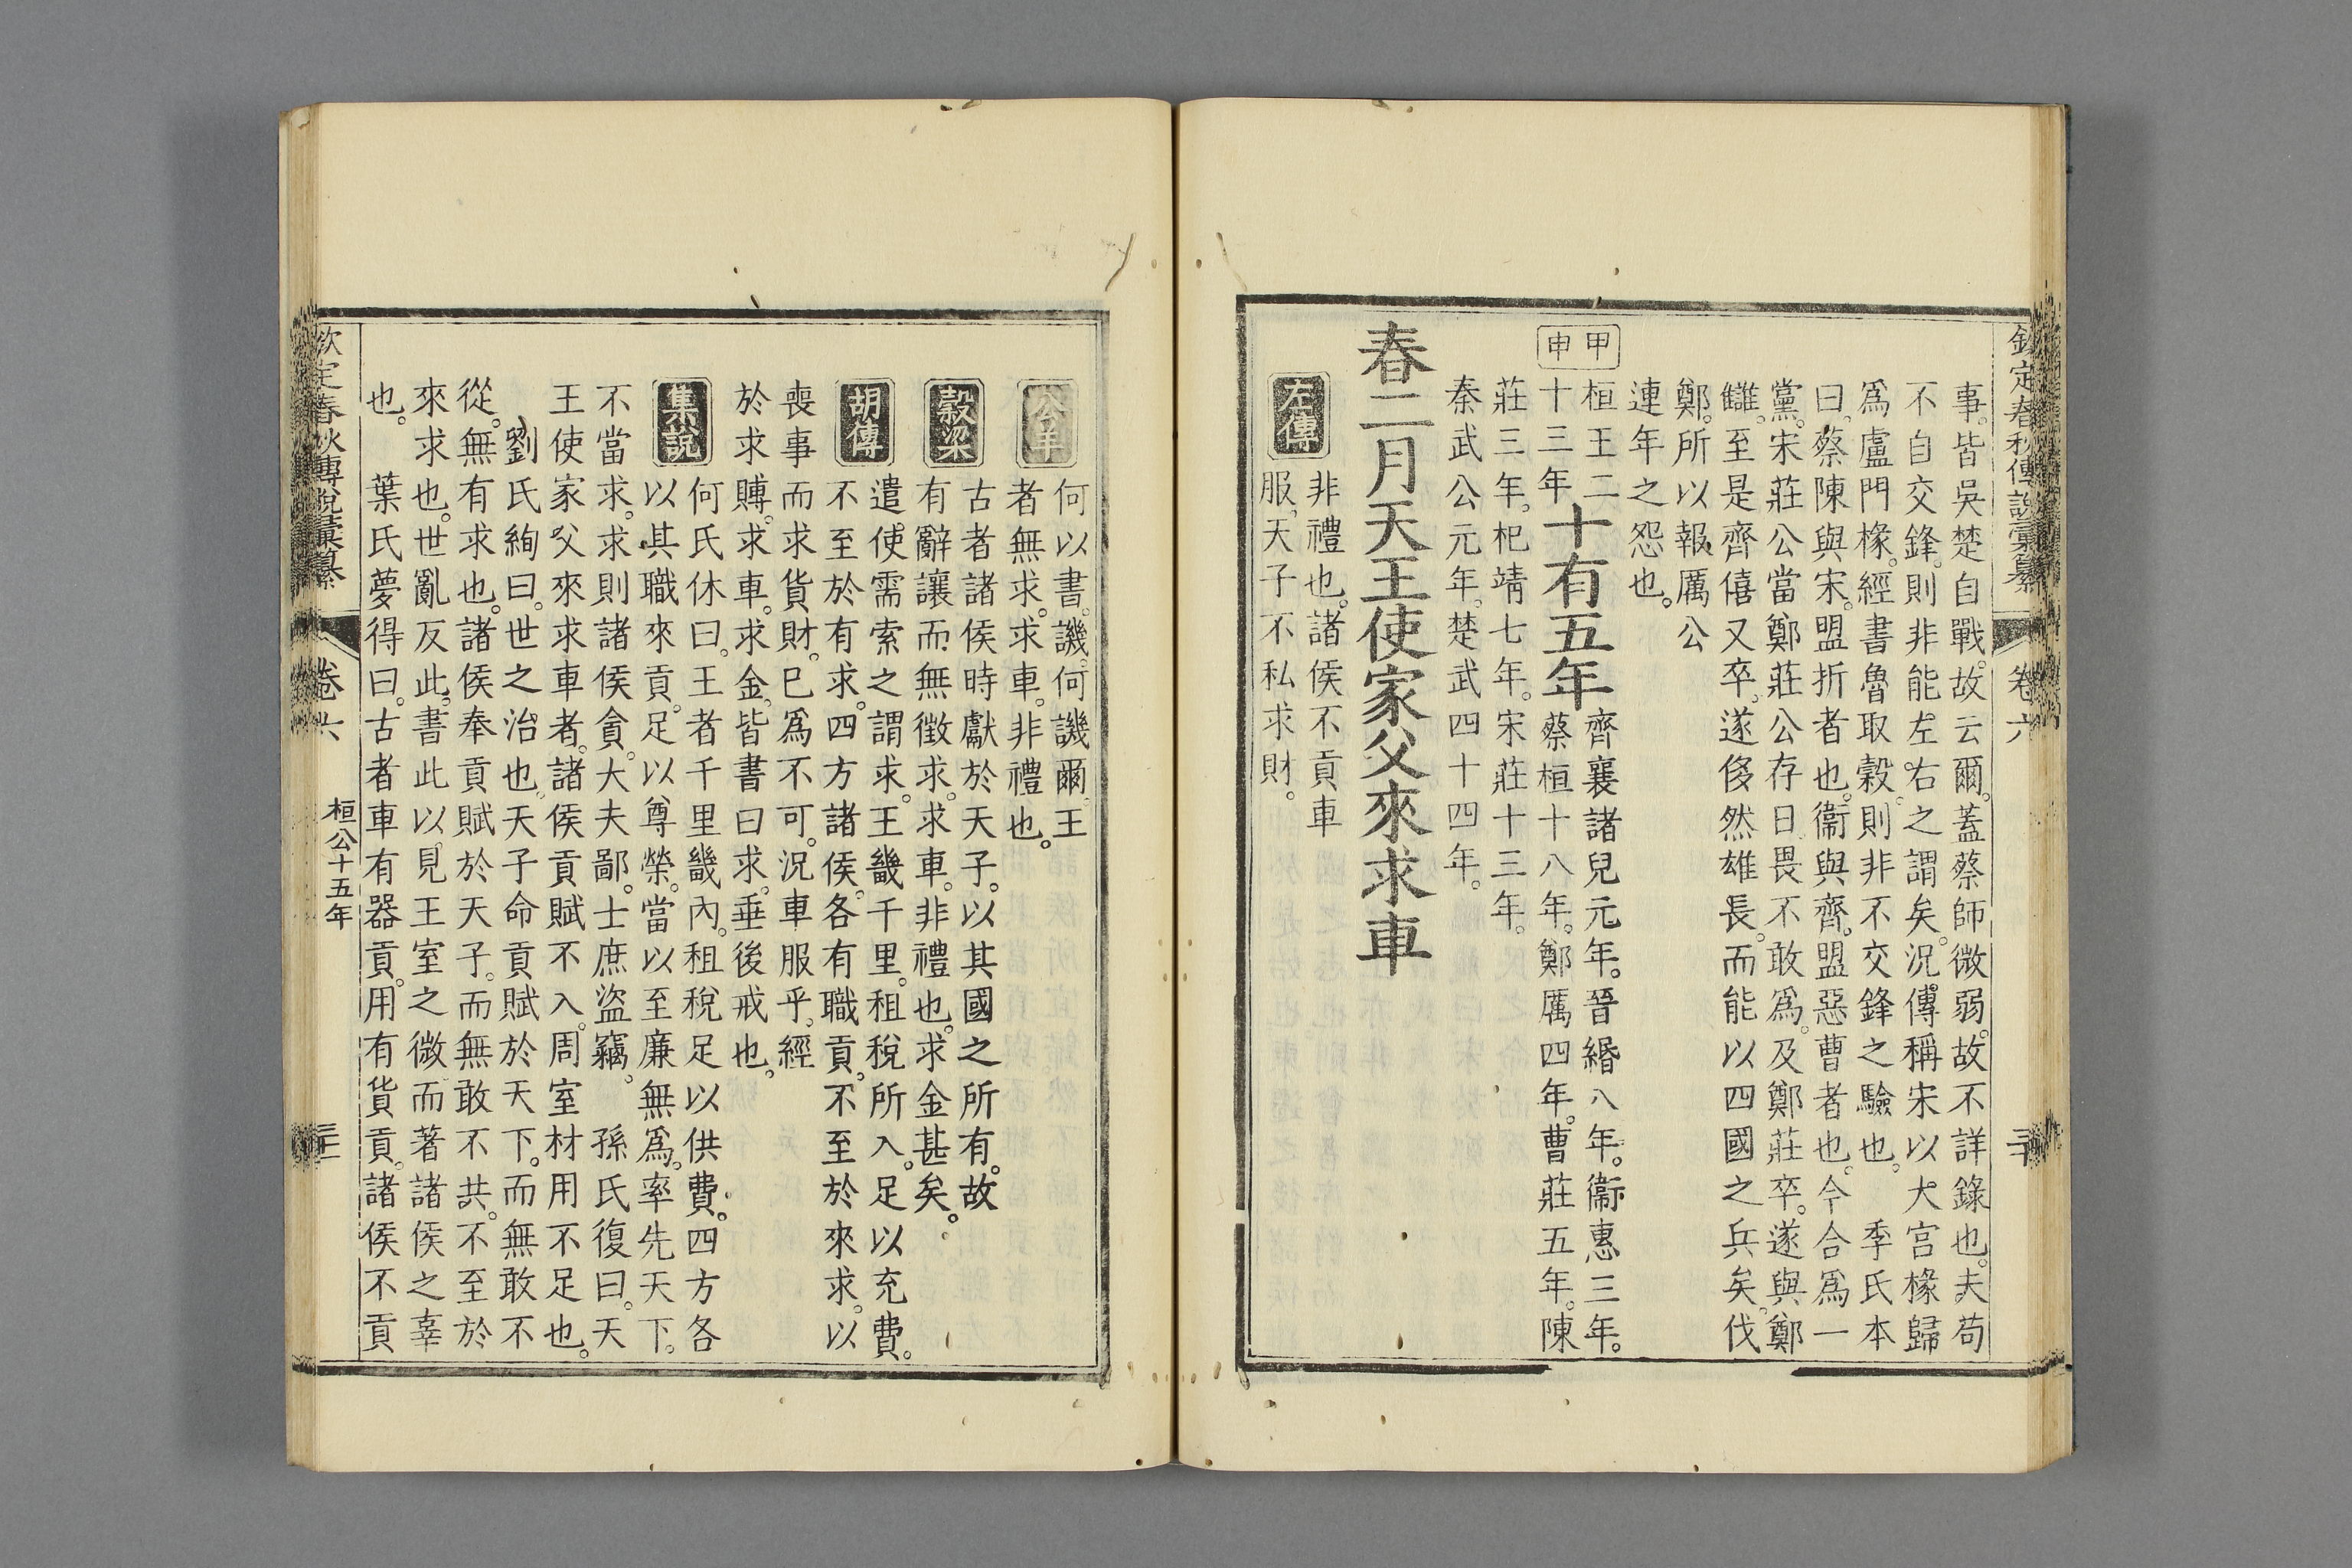 欽定春秋傳說彙纂
卷六
三十
事。皆吳楚自戰。故云爾。蓋蔡師微弱。故不詳錄也。夫苟
不自交鋒。則非能左右之謂矣。況傳稱宋以大宮椽歸
爲盧門椽。經書魯取穀。則非不交鋒之驗也。 季氏本
曰。蔡陳與宋。盟折者也。衞與齊。盟惡曹者也。今合爲一
黨。宋莊公當鄭莊公存日。畏不敢爲。及鄭莊卒。遂與鄭
讎。至是齊僖又卒。遂侈然雄長。而能以四國之兵矣。伐
鄭。所以報厲公
連年之怨也。
甲申
桓王二十三年
十有五年
齊襄諸兒元年。晉緡八年。衞惠三年。
蔡桓十八年。鄭厲四年。曹莊五年。陳
莊三年。杞靖七年。宋莊十三年。
秦武公元年。楚武四十四年。
春二月天王使家父來求車
左傳
非禮也。諸侯不貢車
服。天子不私求財。
公羊
何以書。譏。何譏爾。王
者無求。求車。非禮也。
穀梁
古者諸侯時獻於天子。以其國之所有。故
有辭讓而無徵求。求車。非禮也。求金甚矣。
胡傳
遣使需索之謂求。王畿千里。租稅所入。足以充費。
不至於有求。四方諸侯。各有職貢。不至於來求。以
喪事而求貨財。已爲不可。況車服乎。經
於求賻。求車。求金。皆書曰求。垂後戒也。
集說
何氏休曰。王者千里畿內。租稅足以供費。四方各
以其職來貢。足以尊榮。當以至廉無爲。率先天下。
不當求。求則諸侯貪。大夫鄙。士庶盜竊。 孫氏復曰。天
王使家父來求車者。諸侯貢賦不入。周室材用不足也。
劉氏絢曰。世之治也。天子命貢賦於天下。而無敢不
從。無有求也。諸侯奉貢賦於天子。而無敢不共。不至於
來求也。世亂反此。書此以見王室之微而著諸侯之辜
也。 葉氏夢得曰。古者車有器貢。用有貨貢。諸侯不貢
欽定春秋傳說彙纂
卷六
桓公十五年
三十一